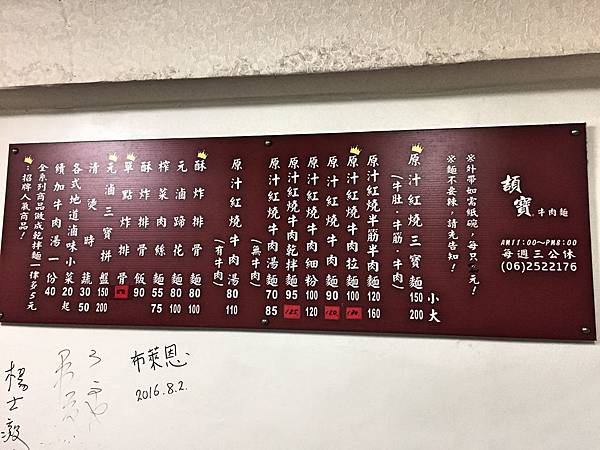 頡寶 牛肉麵
AM11:00~PM8:00
每週三公休
(06)2522176
※外帶如需紙碗,每只 元!
※麵不要辣,請先告知!
小 大
原汁紅燒三寶麵 150 200
(牛肚·牛筋·牛肉)
原汁紅燒半筋半肉麵 120 160
原汁紅燒牛肉拉麵 100
原汁紅燒牛肉麵 90
原汁紅燒牛肉細粉 100 120
原汁紅燒牛肉乾拌麵 95
原汁紅燒牛肉湯麵 70 85
(無牛肉)
原汁紅燒牛肉湯 80 110
(有牛肉)
酥炸排骨麵 80 100
元滷蹄花麵 80 100
榨菜肉絲麵 55 75
酥炸排骨飯 90
單點炸排骨
元滷三寶拼盤 150 200
清燙時蔬 30 50
各式地道滷味小菜 20起
續加牛肉湯一份 40
全系列商品做成乾拌麵一律多5元
:招牌人氣商品!
布萊恩
2016.8.2.
楊士